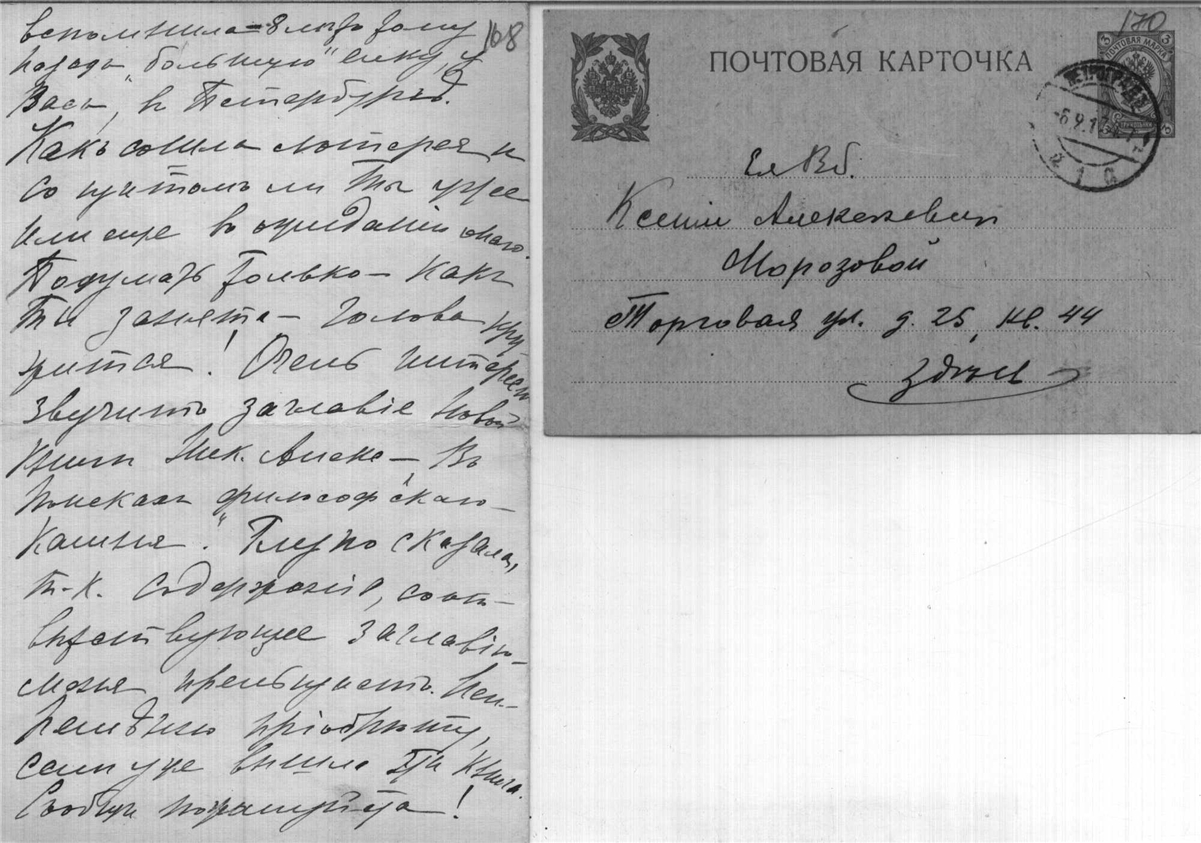 168
вспомнила 8 лѣтъ тому
назадъ „большую“ елку у
Васъ, въ Петербургѣ.
Какъ сошла лотерея и
со щитомъ ли Ты уже
или еще въ ожиданіи онаго.
Подумать только – какъ
Ты занята – голова кру
жится! Очень интересно
звучитъ заглавіе новой
книги Ник. Алекс – Въ
поискахъ философскаго
камня." Глупо сказала,
т-к. содержаніе, соот-
вѣтствующее заглавію –
меня прельщаетъ. Неп-
ремѣнно пріобрѣту,
если уже вышла эта книга.
Сообщи пожалуйста!
170
ПОЧТОВАЯ КАРТОЧКА
3 ПОЧТОВАЯ МАРКА 3
ПЕТРОГРАДЪ
Ея Вб.
Ксеніи Алексѣевнѣ
Морозовой
Торговая ул. д. 25, кв. 44
Здѣсь